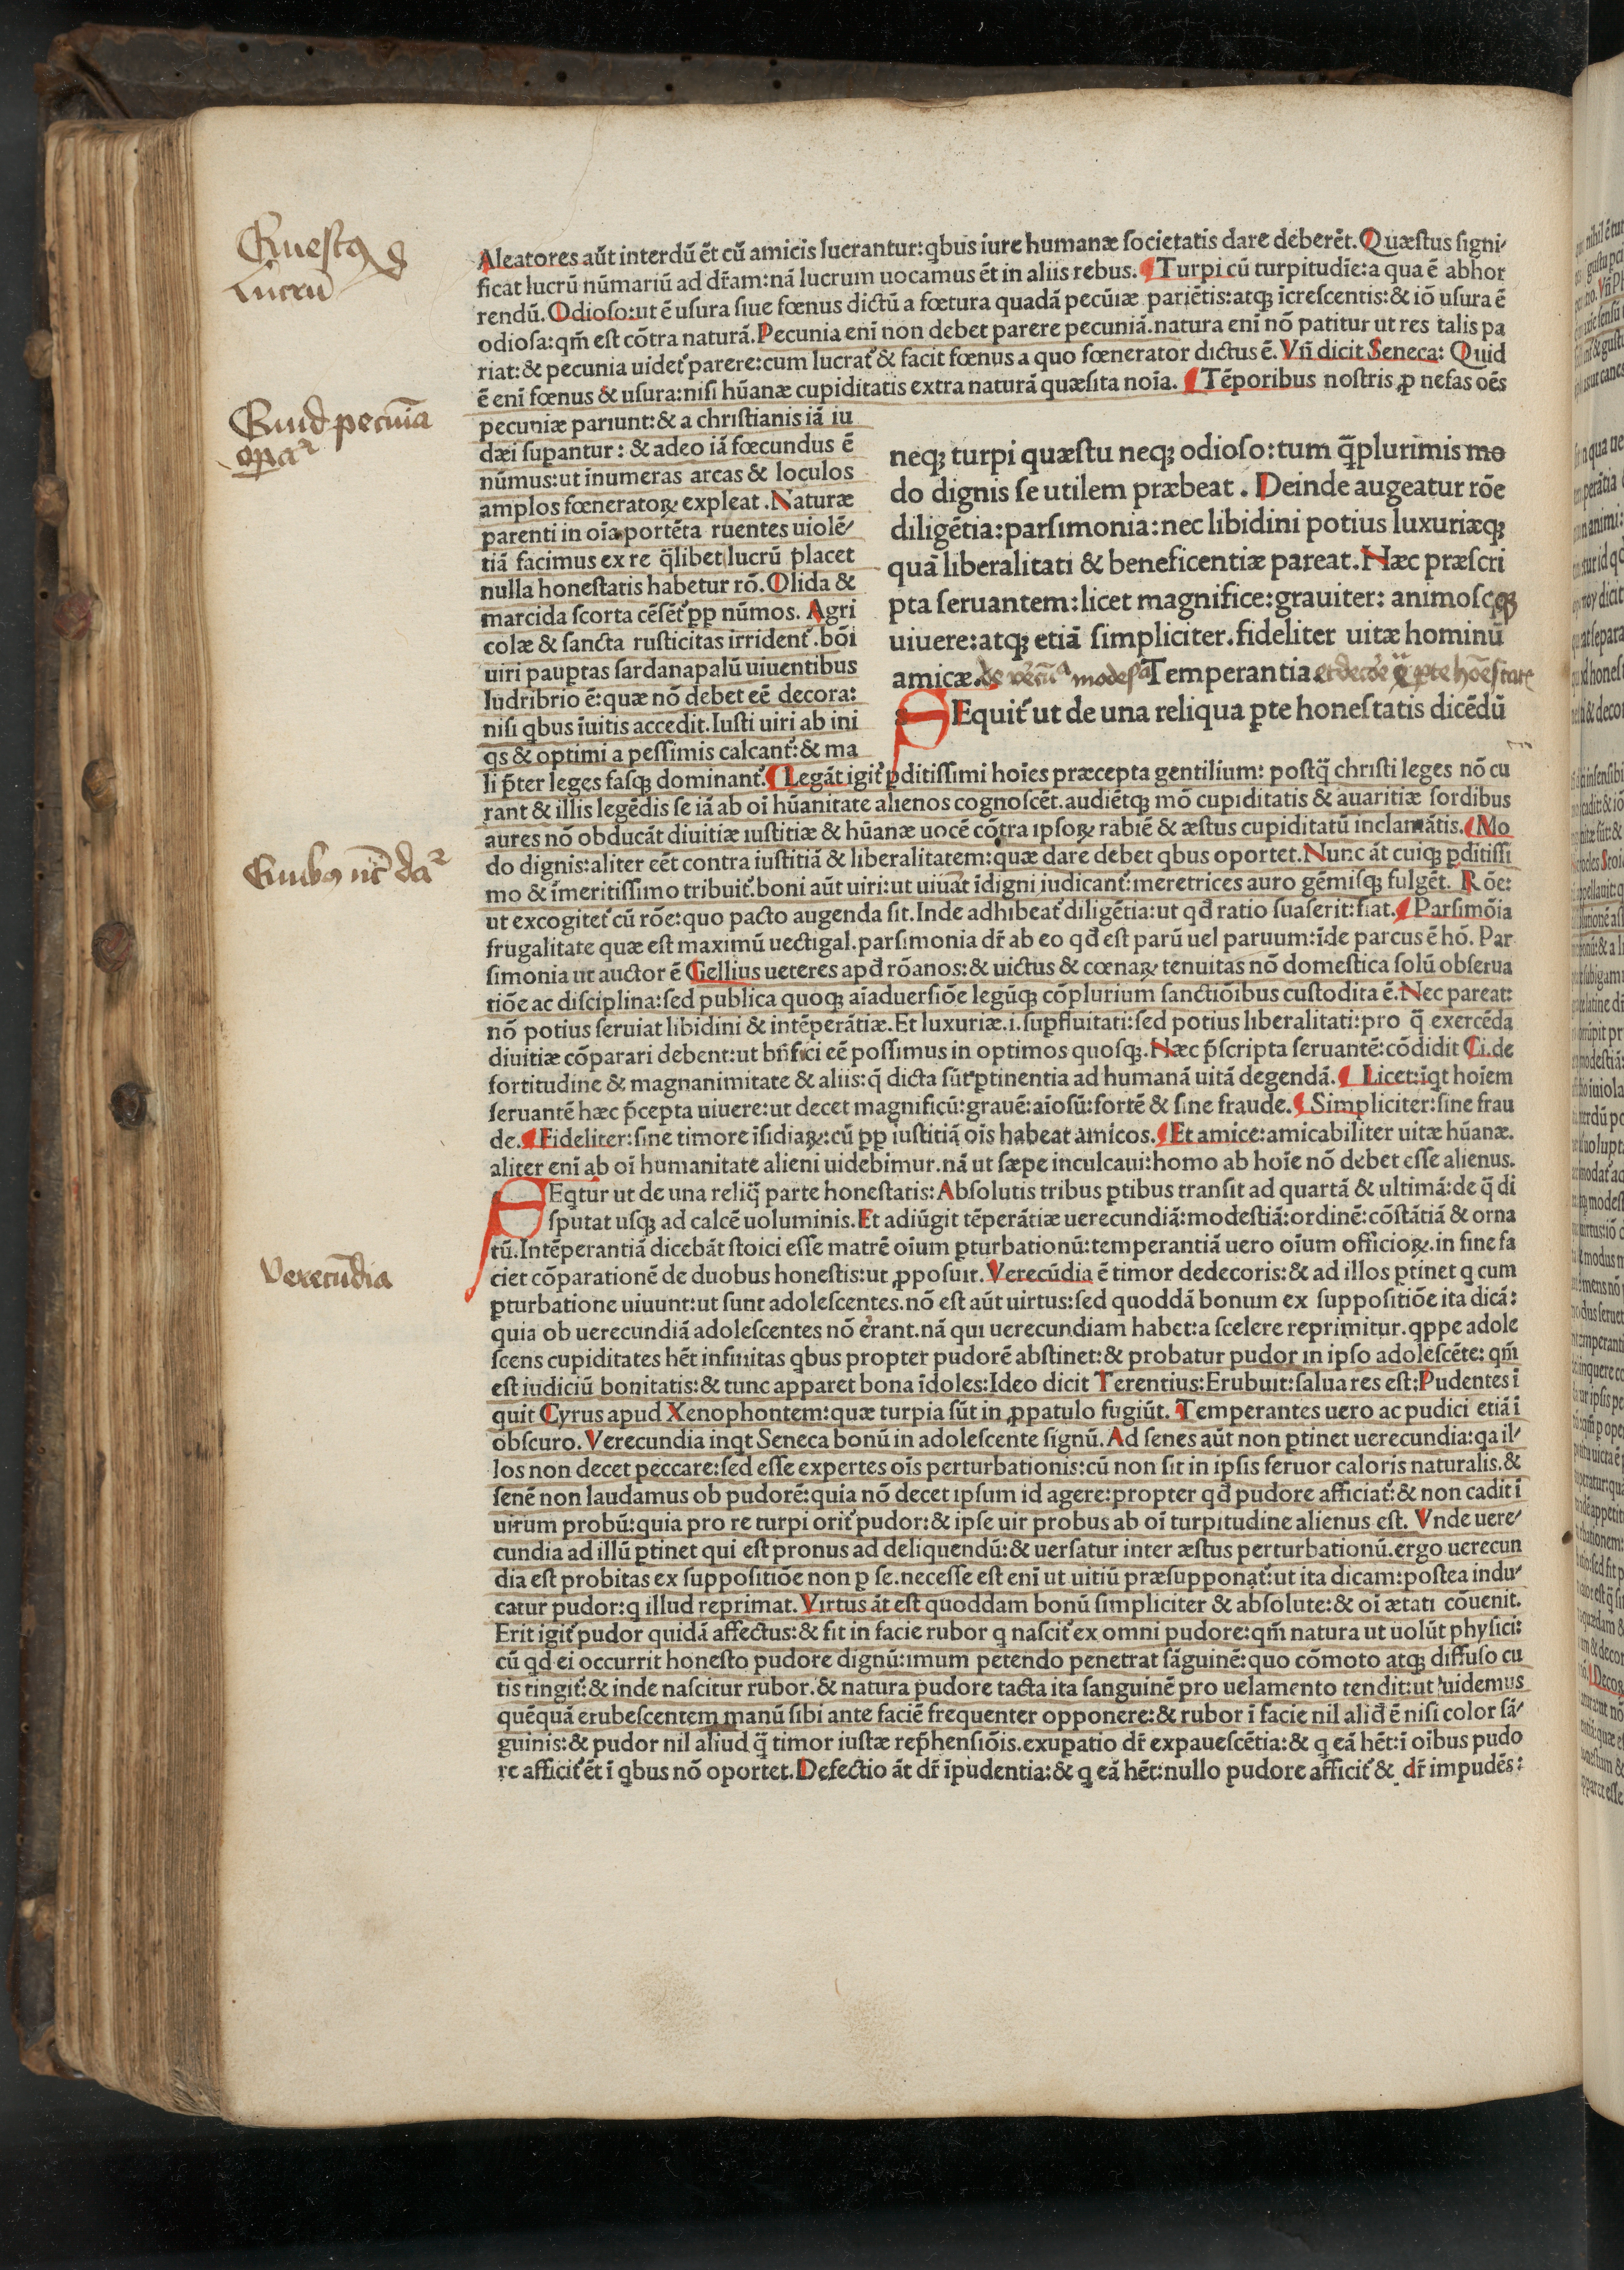 Aleatores aūt interdū ēt cū amicis lucrantur:qbus iure humanæ societatis dare deberēt.Quæstus signi/
ficat lucrū nūmariū ad dr̄am:nā lucrum uocamus ēt in aliis rebus. ¶ Turpi cū turpitudīe:a qua ē abhor
rendū.Odioso:ut ē usura siue fœnus dictū a fœtura quadā pecūiæ pariētis:atq; īcrescentis:& iō usura ē
odiosa:qm̄ est cōtra naturā.Pecunia enī non debet parere pecuniā.natura enī nō patitur ut res talis pa
riat:& pecunia uidet᷑ parere:cum lucrat᷑ & facit fœnus a quo fœnerator dictus ē. Vñ dicit Seneca: Quid
ē enī fœnus & usura:nisi hūanæ cupiditatis extra naturā quæsita noīa. ¶ Tēporibus nostris ꝓ nefas oēs
pecuniæ pariunt:& a christianis iā iu
dæi suꝑantur: & adeo iā fœcundus ē
nūmus:ut īnumeras arcas & loculos
amplos fœneratoꝝ expleat.Naturæ
parenti in oīa portēta ruentes uiolē/
tiā facimus ex re q̄libet lucrū placet
nulla honestatis habetur rō.Olida &
marcida scorta cēsēt᷑ ꝓp nūmos. Agri
colæ & sancta rusticitas irrident᷑.bōi
uiri pauꝑtas sardanapalū uiuentibus
ludribrio ē:quæ nō debet eē decora:
nisi qbus īuitis accedit.Iusti uiri ab ini
qs & optimi a pessimis calcant᷑:& ma
li p̄ter leges fasq; dominant᷑.¶ Legāt igit᷑ ꝑditissimi hoīes præcepta gentilium: postq̄ christi leges nō cu
rant & illis legēdis se iā ab oī hūanitate alienos cognoscēt.audiētq; mō cupiditatis & auaritiæ sordibus
aures nō obducāt diuitiæ iustitiæ & hūanæ uocē cōtra ipsoꝝ rabiē & æstus cupiditatū inclamātis.¶ Mo
do dignis:aliter eēt contra iustitiā & liberalitatem:quæ dare debet qbus oportet.Nunc āt cuiq; ꝑditissi
mo & īmeritissimo tribuit᷑.boni aūt uiri:ut uiuāt īdigni iudicant᷑:meretrices auro gēmisq; fulgēt. Rōe:
ut excogitet᷑ cū rōe:quo pacto augenda sit.Inde adhibeat᷑ diligētia:ut qđ ratio suaserit:fiat.¶ Parsimōia
frugalitate quæ est maximū uectigal.parsimonia dr̄ ab eo qđ est parū uel paruum:īde parcus ē hō. Par
simonia ut auctor ē Gellius ueteres apđ rōanos:& uictus & cœnaꝝ tenuitas nō domestica solū obserua
tiōe ac disciplina:sed publica quoq; aīaduersiōe legūq; cōplurium sanctiōibus custodita ē.Nec pareat:
nō potius seruiat libidini & intēperātiæ.Et luxuriæ.i.suꝑfluitati:sed potius liberalitati:pro q̄ exercēda
diuitiæ cōparari debent:ut bn̄fici eē possimus in optimos quosq;.Hæc p̄scripta seruantē:cōdidit Ci.de
fortitudine & magnanimitate & aliis:q̄ dicta sūt ꝑtinentia ad humanā uitā degendā.¶ Licet:īqt hoīem
seruantē hæc p̄cepta uiuere:ut decet magnificū:grauē:aīosū:fortē & sine fraude.¶ Simpliciter:sine frau
de.¶ Fideliter:sine timore īsidiaꝝ:cū ꝓp iustitiā oīs habeat amicos.¶ Et amice:amicabiliter uitæ hūanæ.
aliter enī ab oī humanitate alieni uidebimur.nā ut sæpe inculcaui:homo ab hoīe nō debet esse alienus.
SEqtur ut de una reliq̄ parte honestatis:Absolutis tribus ꝑtibus transit ad quartā & ultimā:de q̄ di
sputat usq; ad calcē uoluminis.Et adiūgit tēperātiæ uerecundiā:modestiā:ordinē:cōstātiā & orna
tū.Intēperantiā dicebāt stoici esse matrē oīum ꝑturbationū:temperantiā uero oīum officioꝝ.in fine fa
ciet cōparationē de duobus honestis:ut ꝓposuit.Verecūdia ē timor dedecoris:& ad illos ꝑtinet q cum
ꝑturbatione uiuunt:ut sunt adolescentes.nō est aūt uirtus:sed quoddā bonum ex suppositiōe ita dicā:
quia ob uerecundiā adolescentes nō errant.nā qui uerecundiam habet:a scelere reprimitur.qppe adole
scens cupiditates hēt infinitas qbus propter pudorē abstinet:& probatur pudor in ipso adolescēte: qm̄
est iudiciū bonitatis:& tunc apparet bona īdoles:Ideo dicit Terentius:Erubuit:salua res est:Pudentes ī
quit Cyrus apud Xenophontem:quæ turpia sūt in ꝓpatulo fugiūt. Temperantes uero ac pudici etiā ī
obscuro. Verecundia inqt Seneca bonū in adolescente signū. Ad senes aūt non ꝑtinet uerecundia:qa il/
los non decet peccare:sed esse expertes oīs perturbationis:cū non sit in ipsis feruor caloris naturalis.&
senē non laudamus ob pudorē:quia nō decet ipsum id agere:propter qđ pudore afficiat᷑:& non cadit ī
uirum probū:quia pro re turpi orit᷑ pudor:& ipse uir probus ab oī turpitudine alienus est. Vnde uere/
cundia ad illū ꝑtinet qui est pronus ad deliquendū:& uersatur inter æstus perturbationū.ergo uerecun
dia est probitas ex suppositiōe non ꝑ se.necesse est enī ut uitiū præsupponat᷑:ut ita dicam:postea indu/
catur pudor:q illud reprimat.Virtus āt est quoddam bonū simpliciter & absolute:& oī ætati cōuenit.
Erit igit᷑ pudor quidā affectus:& fit in facie rubor q nascit᷑ ex omni pudore:qm̄ natura ut uolūt physici:
cū qd ei occurrit honesto pudore dignū:imum petendo penetrat sāguinē:quo cōmoto atq; diffuso cu
tis tingit᷑:& inde nascitur rubor.& natura pudore tacta ita sanguinē pro uelamento tendit:ut uidemus
quēquā erubescentem manū sibi ante faciē frequenter opponere:& rubor ī facie nil aliđ ē nisi color sā/
guinis:& pudor nil aliud q̄ timor iustæ rep̄hensiōis.exuꝑatio dr̄ expauescētia:& q eā hēt:ī oībus pudo
re afficit᷑ ēt ī qbus nō oportet.Defectio āt dr̄ īpudentia:& q eā hēt:nullo pudore afficit᷑ & dr̄ impudēs:
neq; turpi quæstu neq; odioso:tum q̄plurimis mo
do dignis se utilem præbeat. Deinde augeatur rōe
diligētia:parsimonia:nec libidini potius luxuriæq;
quā liberalitati & beneficentiæ pareat.Hæc præscri
pta seruantem:licet magnifice:grauiter: animoseq;
uiuere:atq; etiā simpliciter.fideliter uitæ hominū
amicæ. Temperantia
SEquit᷑ ut de una reliqua ꝑte honestatis dicēdū
Questꝯ
Lucrū
Quid pecūia
opat᷑
Quibꝯ nc̄ dat᷑
Verecūdia